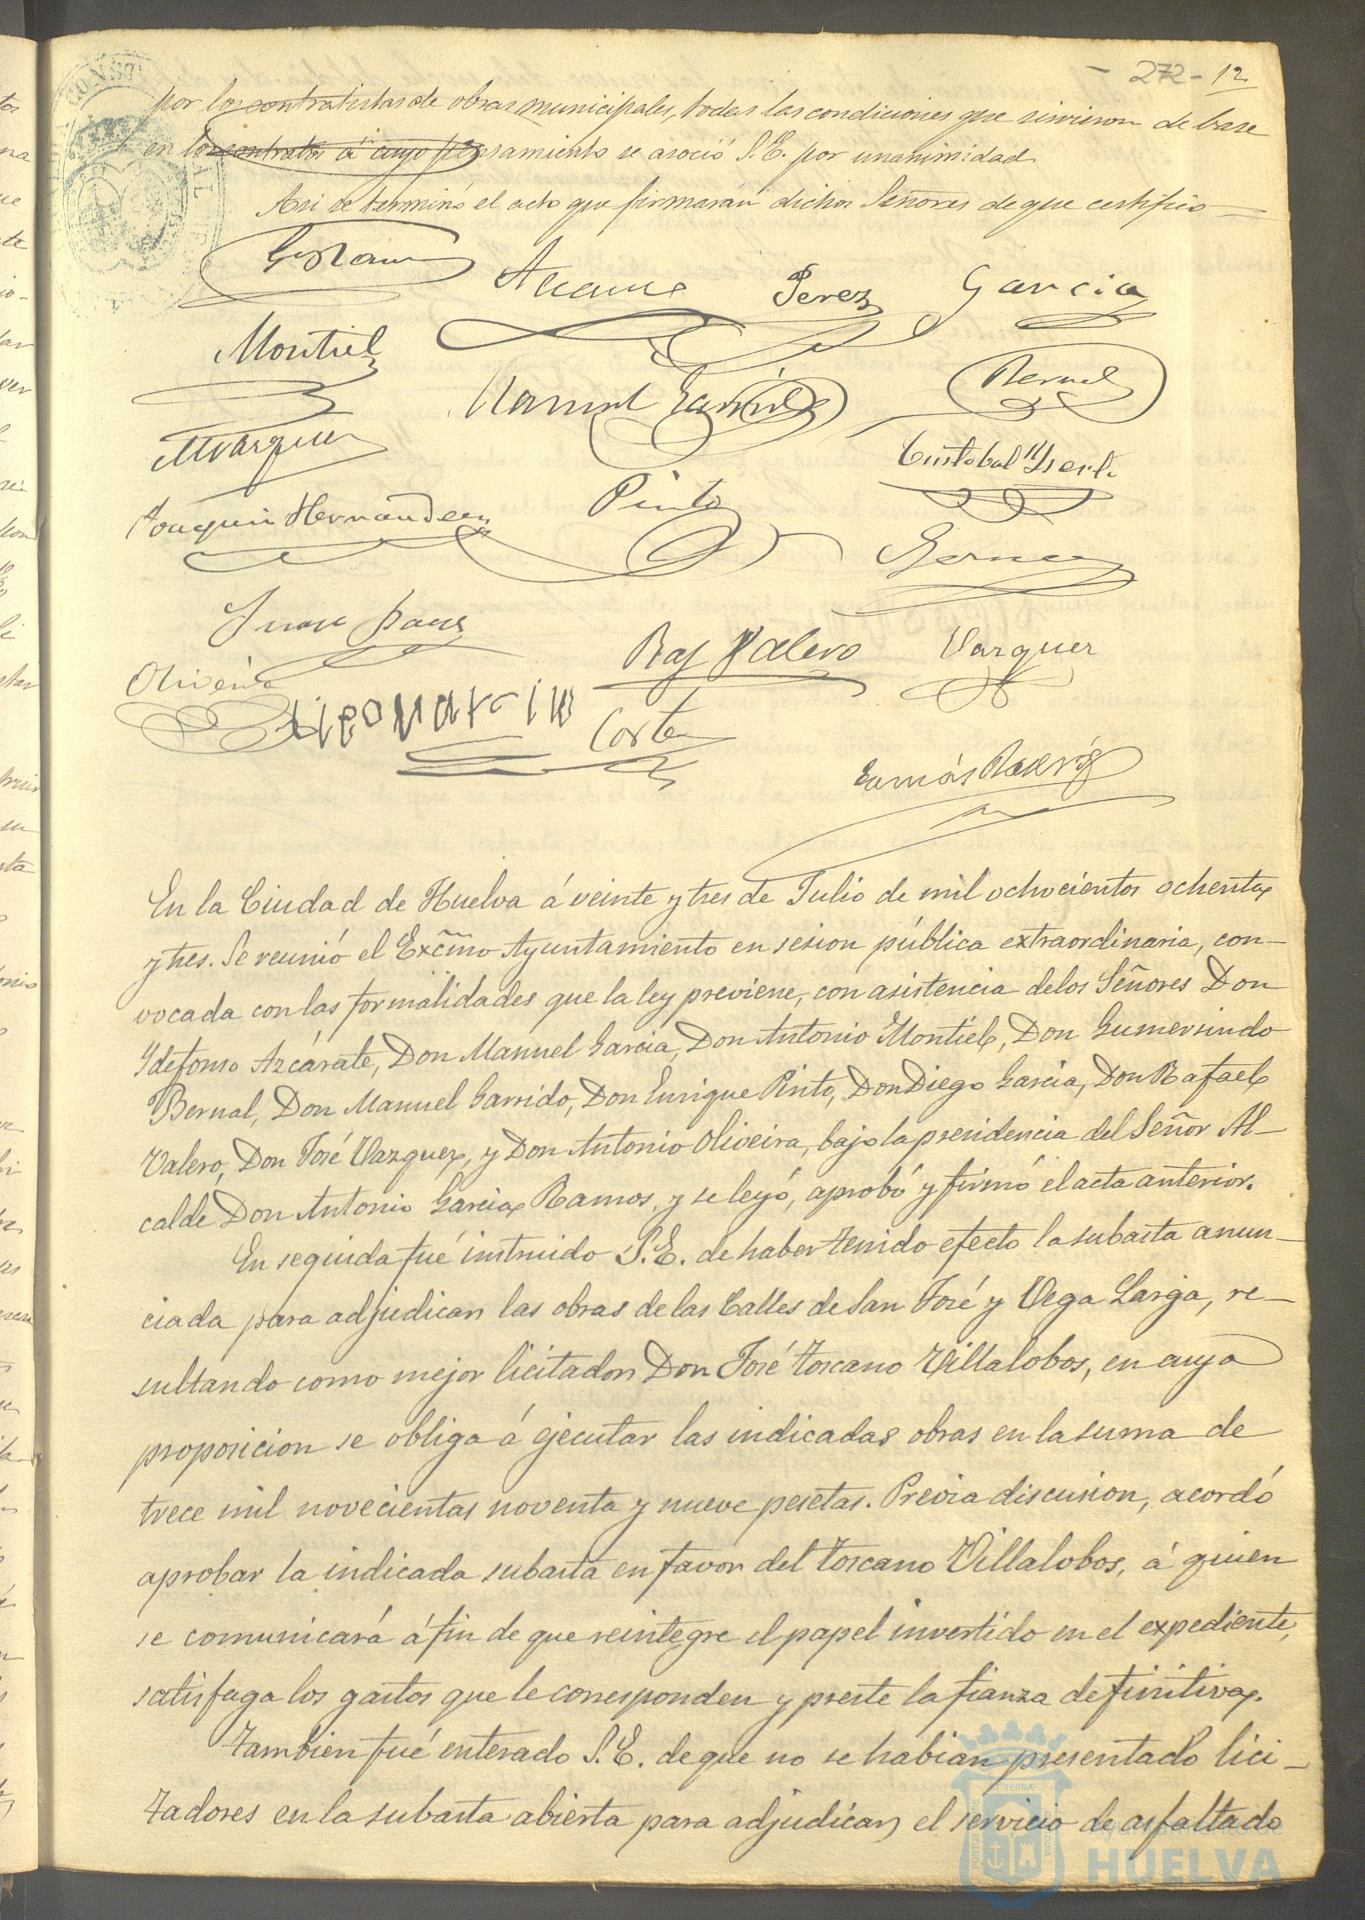 - 272 - 12
por los contratistas de obras municipales, todas las condiciones que sirvieron de base
en los contratos á cuyo pensamiento se asoció S.E. por unanimidad.
Asi se terminó el acto que firmarán dichos Señores de que certifico
Perez Garcia
Montiel Manuel Garrido Bernal
Marquez Cristobal
Joaquin Hernandez Pinto
Raf Valero Vazquez
Oliveira
Cortes
Tomás
En la Ciudad de Huelva á veinte y tres de Julio de mil ochocientos ochenta
y tres. Se reunió el Excmo Ayuntamiento en sesion pública extraordinaria, con-
vocada con las formalidades que la ley previene, con asistencia de los Señores Don
Ildefonso Azcárate, Don Manuel Garcia, Don Antonio Montiel, Don Gumersindo
Bernal, Don Manuel Garrido, Don Enrique Pinto, Don Diego Garcia, Don Rafael
Valero, Don José Vazquez, y Don Antonio Oliveira, bajo la presidencia del Señor Al-
calde Don Antonio Garcia Ramos, y se leyó, aprobó y firmó el acta anterior.
En seguida fué instruido S.E. de haber tenido efecto la subasta anun-
ciada para adjudicar las obras de las Calles de San José y Vega Larga, re-
sultando como mejor licitador Don José Toscano Villalobos, en cuya
proposicion se obliga á ejecutar las indicadas obras en la suma de
trece mil novecientas noventa y nueve pesetas. Previa discusion, acordó
aprobar la indicada subasta en favor del Toscano Villalobos, á quien
se comunicará á fin de que reintegre el papel invertido en el expediente,
satisfaga los gastos que le corresponden y preste la fianza definitiva.
Tambien fué enterado S.E. de que no se habian presentado lici-
tadores en la subasta abierta para adjudicar el servicio de asfaltado
Ayuntamiento de
HUELVA